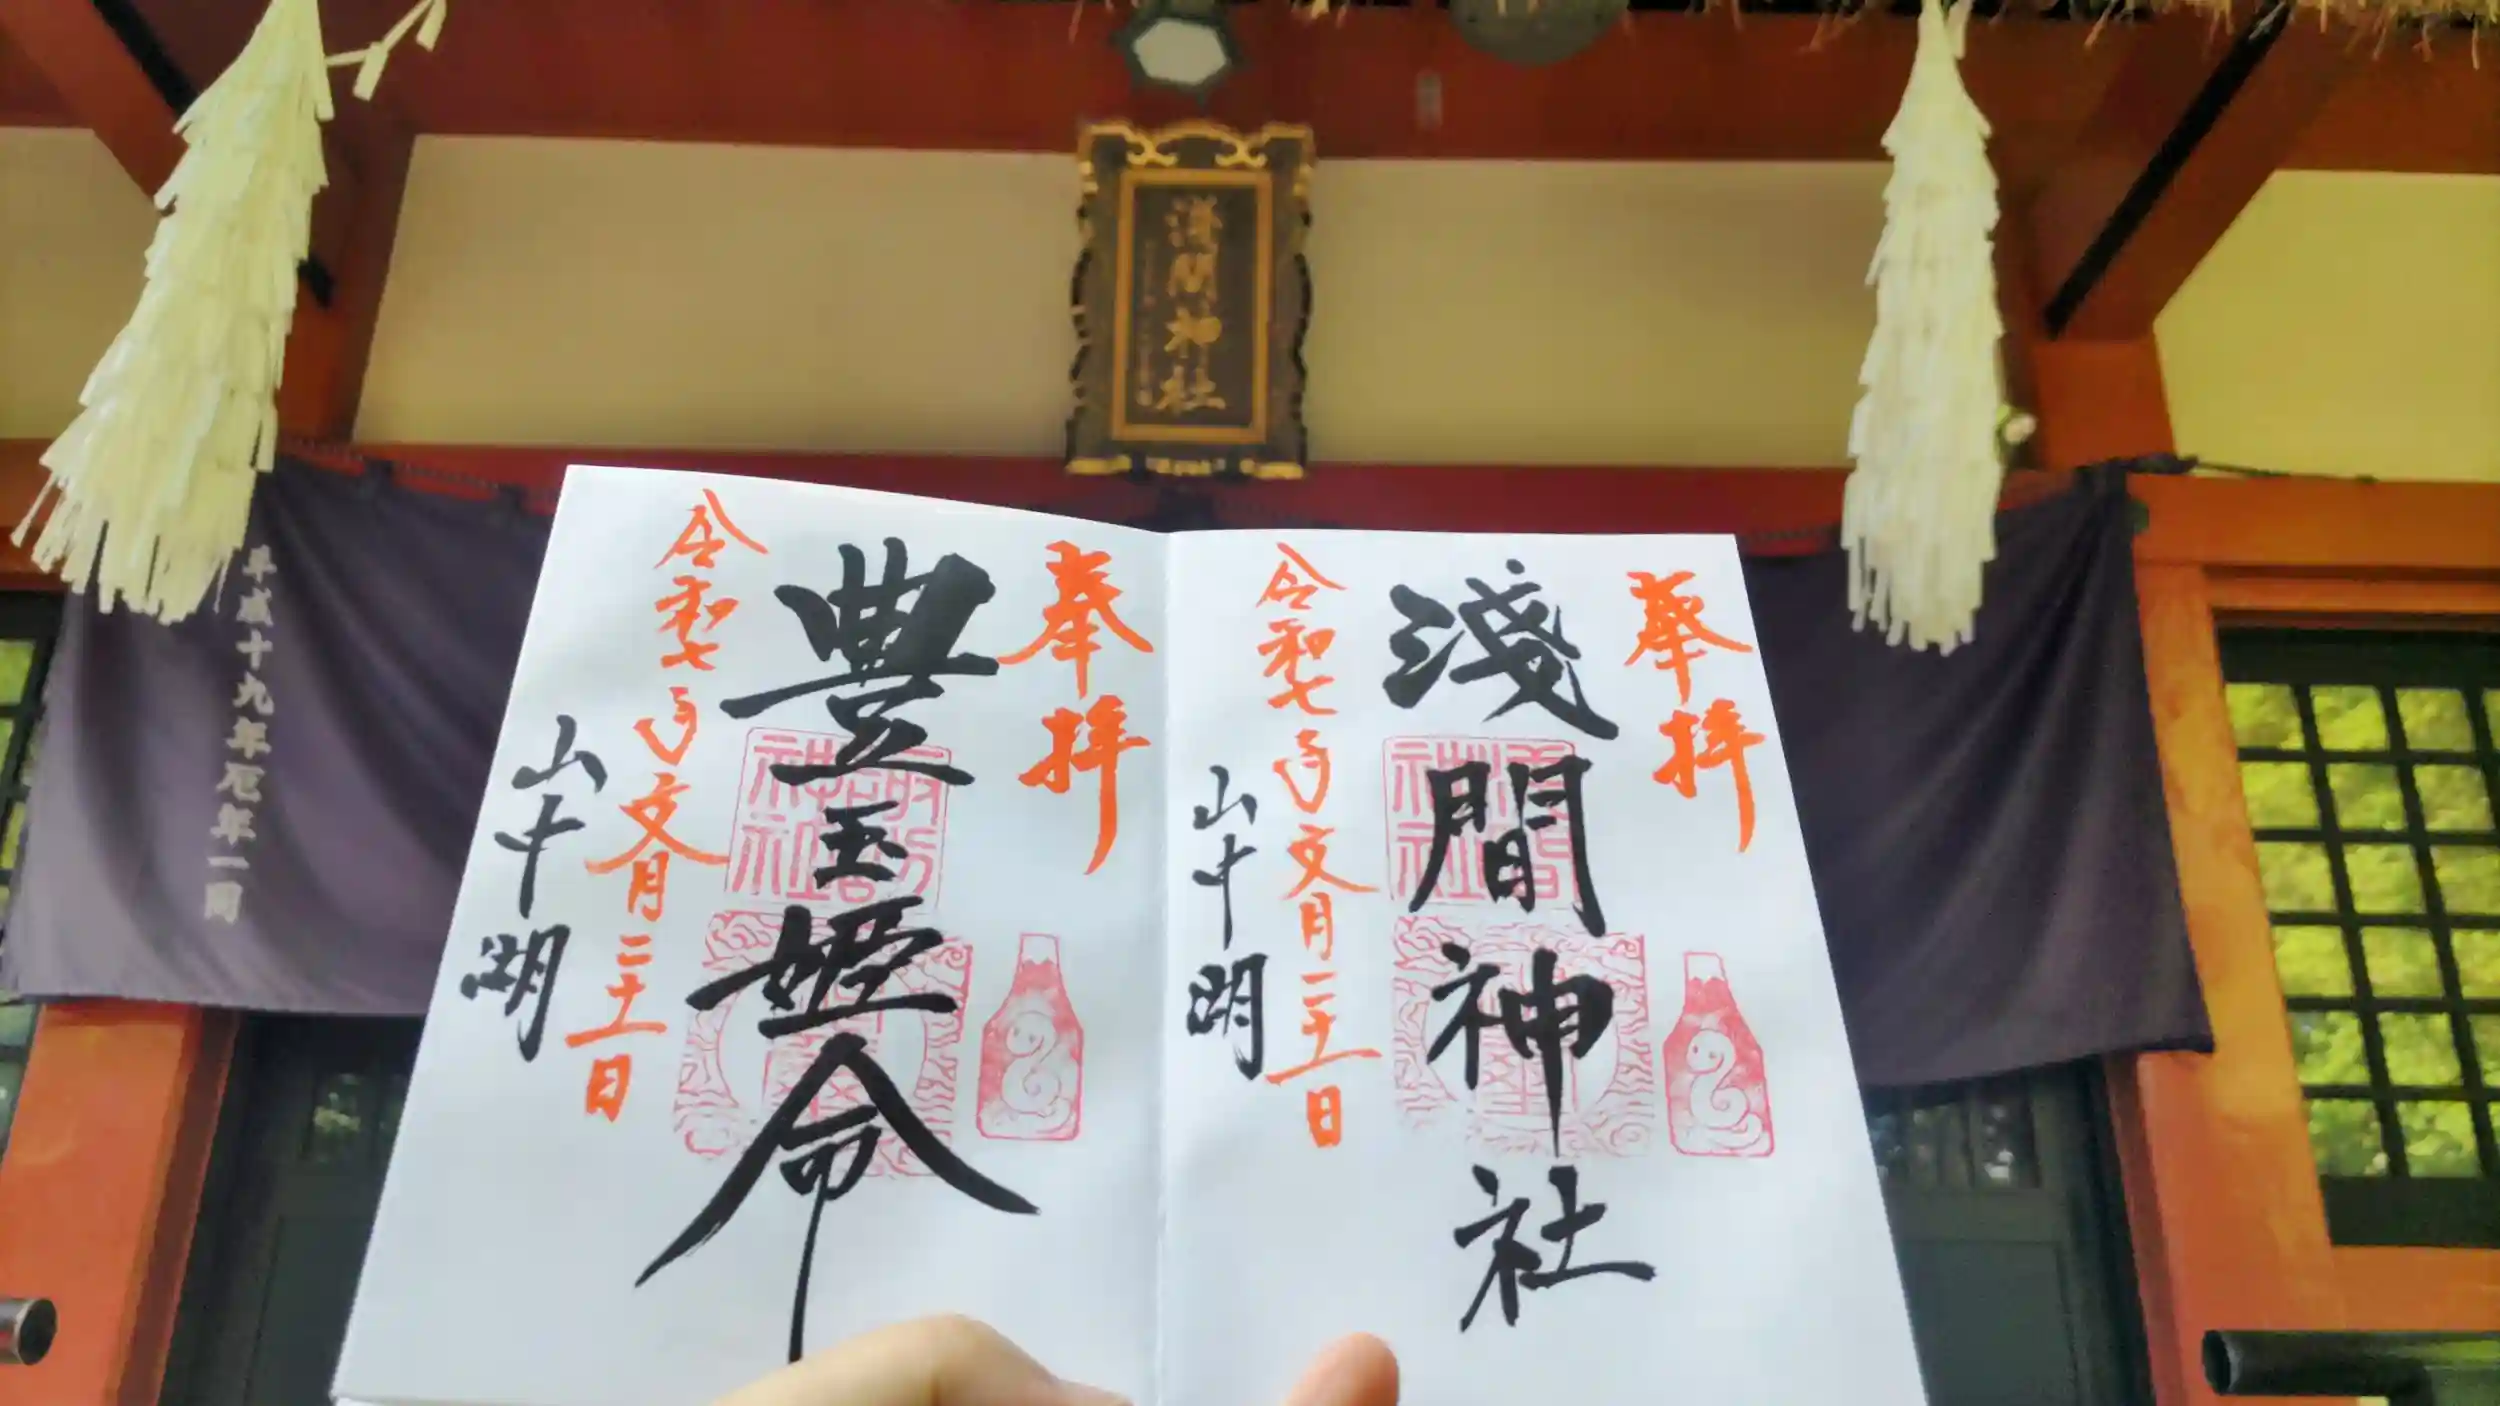 淺間神社
平成十九年厄年一同
奉拝
淺間神社
令和七年文月二十一日
山中湖
奉拝
豊玉姫命
令和七年文月二十一日
山中湖